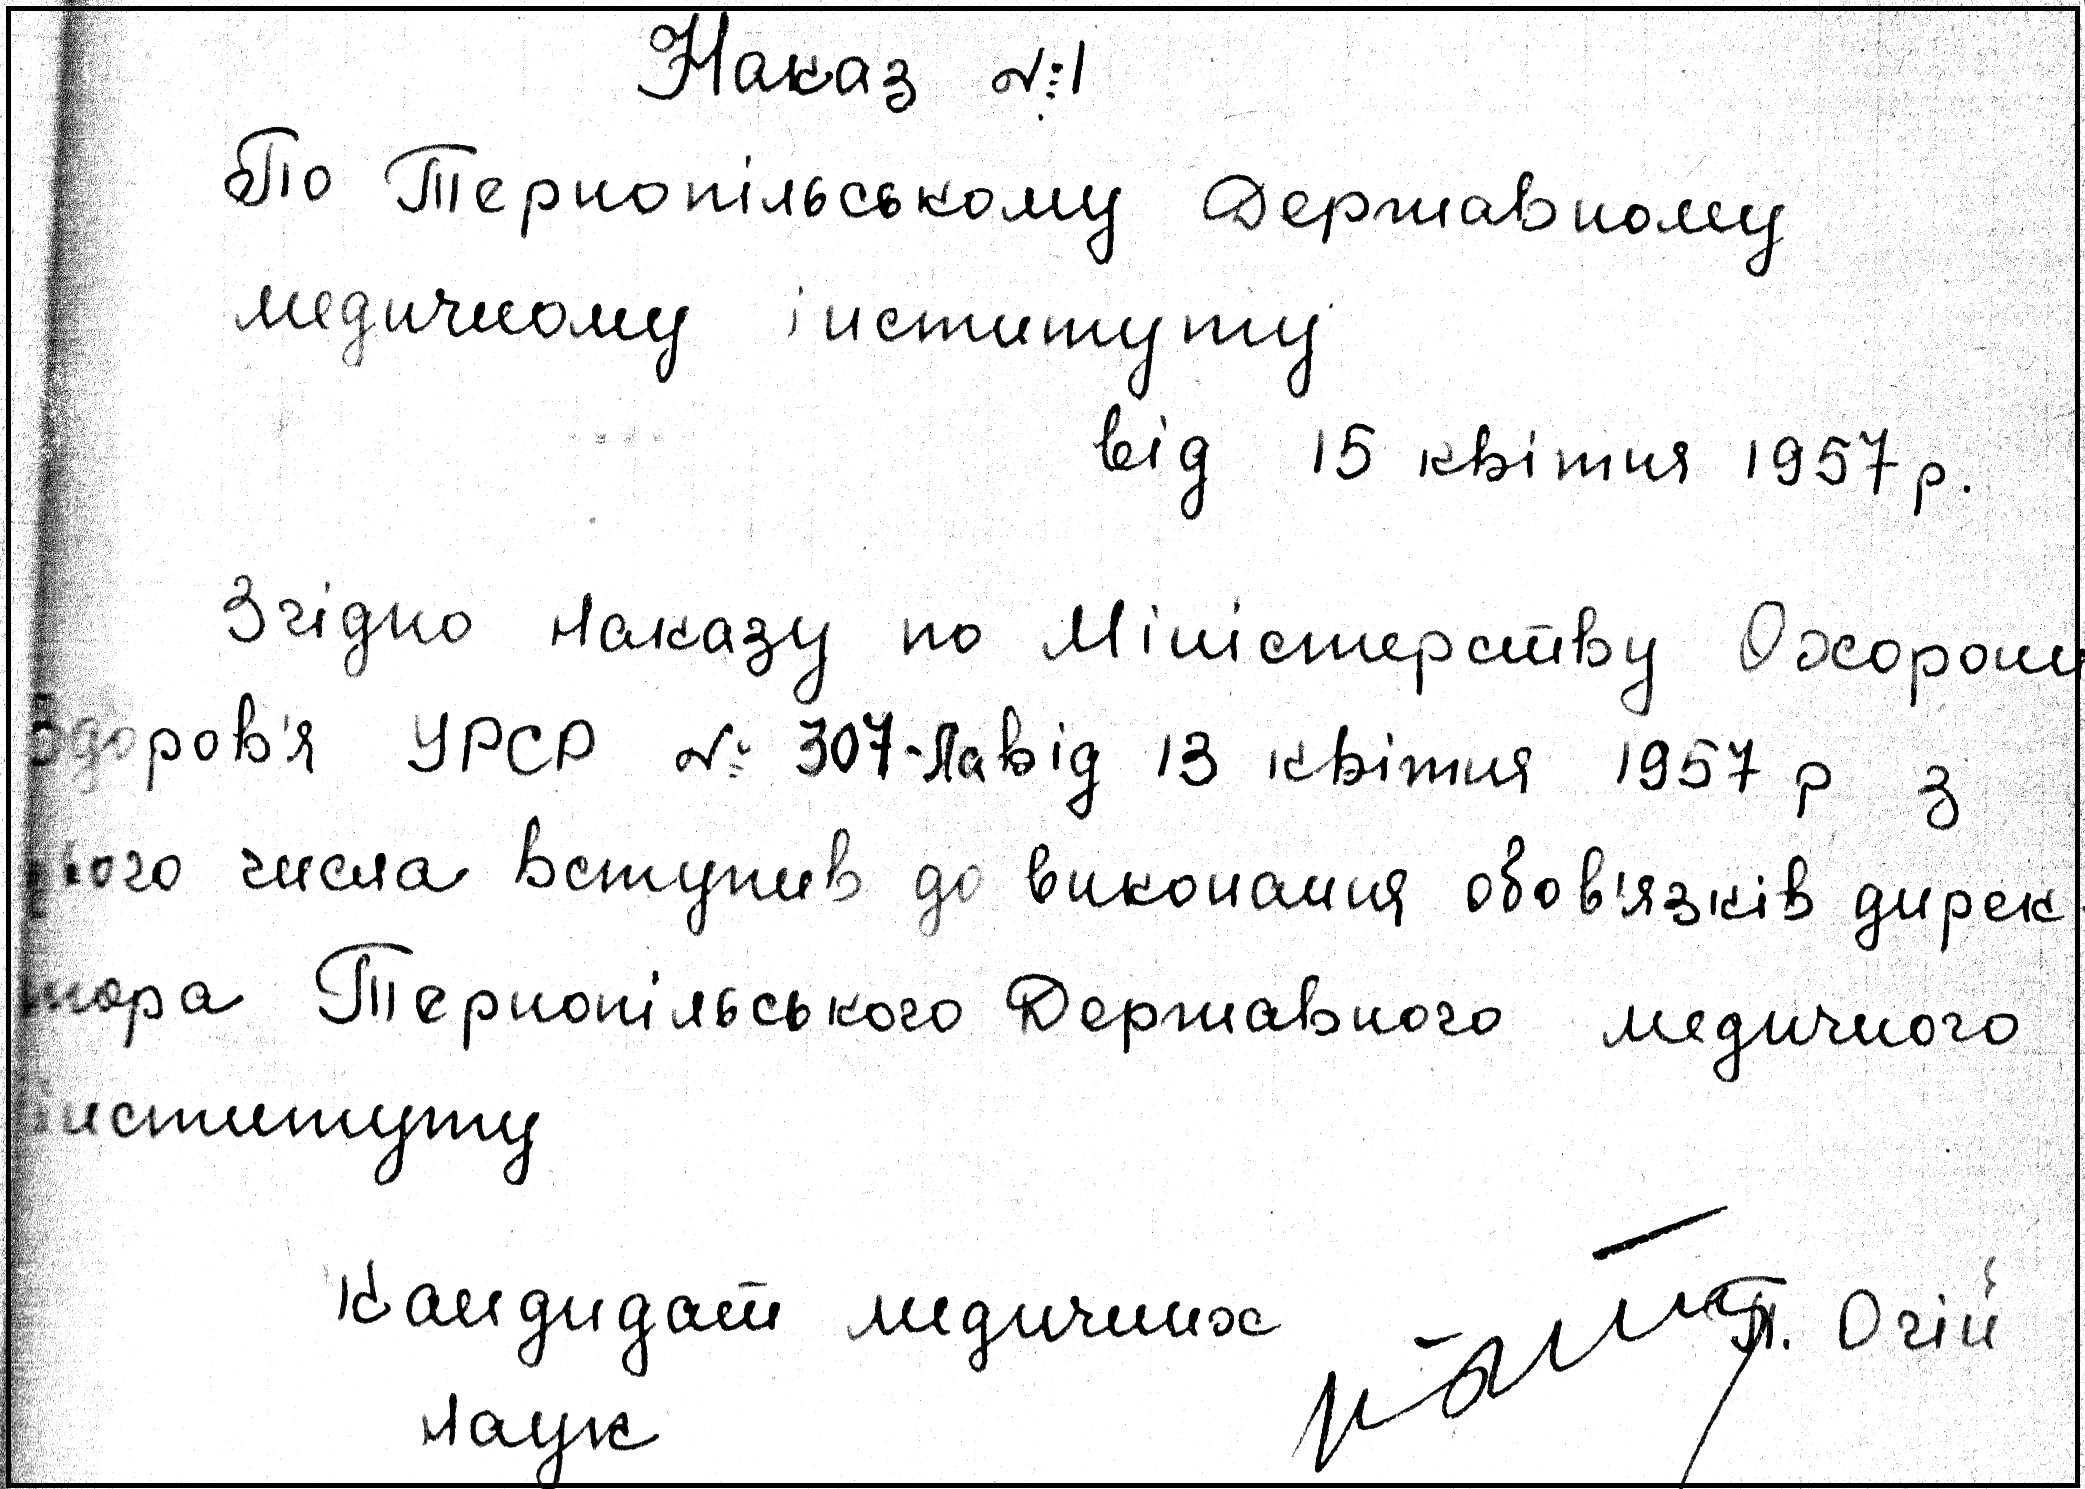 Наказ №1
По Тернопільському Державному
медичному інституту
від 15 квітня 1957 р.
Згідно наказу по Міністерству Охорони
здоров'я УРСР № 307-Ла від 13 квітня 1957 р з
цього числа вступив до виконання обов'язків дирек-
тора Тернопільського Державного медичного
інституту
Кандидат медичних П. Огій
наук